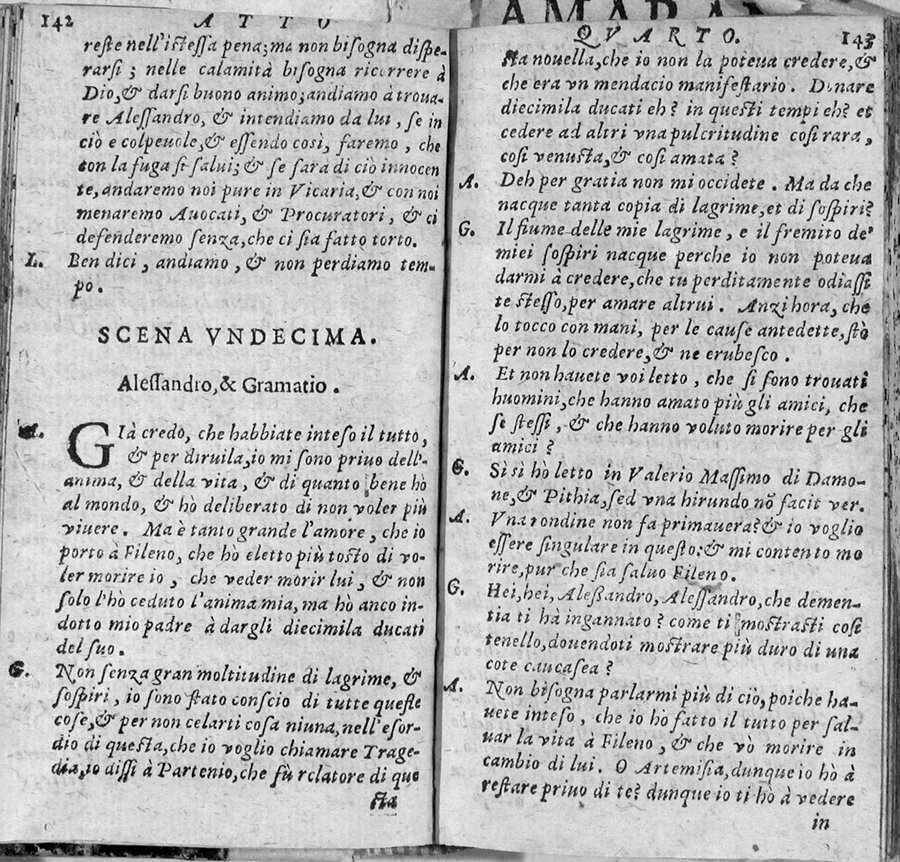 142 ATTO
reste nell'istessa pena; ma non bisogna dispe-
rarsi; nelle calamità bisogna ricorrere à
Dio, & darsi buono animo; andiamo à troua-
re Alessandro, & intendiamo da lui, se in
ciò e colpeuole, & essendo così, faremo, che
con la fuga si salui; & se sarà di ciò innocen
te, andaremo noi pure in Vicaria, & con noi
menaremo Auocati, & Procuratori, & ci
defenderemo senza, che ci sia fatto torto.
L. Ben dici, andiamo, & non perdiamo tem-
po.
SCENA VNDECIMA.
Alessandro, & Gramatio.
A. GIà credo, che habbiate inteso il tutto,
& per diruila, io mi sono priuo dell'-
anima, & della vita, & di quanto bene hò
al mondo, & hò deliberato di non voler più
viuere. Ma è tanto grande l'amore, che io
porto à Fileno, che hò eletto più tosto di vo-
ler morire io, che veder morir lui, & non
solo l'hò ceduto l'anima mia, ma hò anco in-
dotto mio padre à dargli diecimila ducati
del suo.
G. Non senza gran moltitudine di lagrime, &
sospiri, io sono stato conscio di tutte queste
cose, & per non celarti cosa niuna, nell'esor-
dio di questa, che io voglio chiamare Trage-
dia, io dissi à Partenio, che fù relatore di que
sta
AMARAN
QVARTO. 143
sta nouella, che io non la poteua credere, &
che era vn mendacio manifestario. Donare
diecimila ducati eh? in questi tempi eh? et
cedere ad altri vna pulcritudine cosi rara,
cosi venusta, & cosi amata?
A. Deh per gratia non mi occidete. Ma da che
nacque tanta copia di lagrime, et di sospiri?
G. Il fiume delle mie lagrime, e il fremito de'
miei sospiri nacque perche io non poteua
darmi à credere, che tu perditamente odiassi
te stesso, per amare altrui. Anzi hora, che
lo tocco con mani, per le cause antedette, stò
per non lo credere, & ne erubesco.
A. Et non hauete voi letto, che si sono trouati
huomini, che hanno amato più gli amici, che
se stessi, & che hanno voluto morire per gli
amici?
G. Sì sì hò letto in Valerio Massimo di Damo-
ne, & Pithia, sed vna hirundo nō facit ver.
A. Vna rondine non fa primauera? & io voglio
essere singulare in questo: & mi contento mo
rire, pur che sia saluo Fileno.
G. Hei, hei, Aleßandro, Alessandro, che demen-
tia ti hà ingannato? come ti mostrasti così
tenello, douendoti mostrare più duro di una
cote caucasea?
A. Non bisogna parlarmi più di ciò, poiche ha-
uete inteso, che io hò fatto il tutto per sal-
uar la vita à Fileno, & che vò morire in
cambio di lui. O Artemisia, dunque io hò à
restare priuo di te? dunque io ti hò à vedere
in